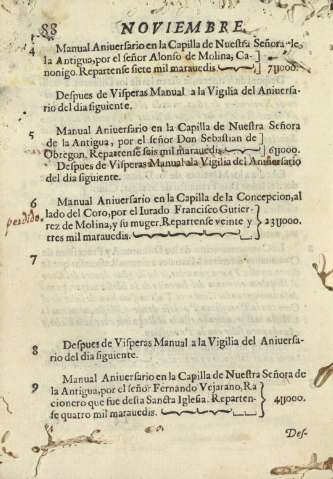 88 NOVIEMBRE.
4 Manual Aniuersario en la Capilla de Nuestra Señora de
la Antigua, por el señor Alonso de Molina, Ca-
nonigo. Repartense siete mil marauedis. 7U000.
Despues de Visperas Manual a la Vigilia del Aniuersa-
rio del dia siguiente.
5 Manual Aniuersario en la Capilla de Nuestra Señora
de la Antigua, por el señor Don Sebastian de
Obregon. Repartense seis mil marauedis. 6U000.
Despues de Visperas Manual a la Vigilia del Aniuersario
del dia siguiente.
6 Manual Aniuersario en la Capilla de la Concepcion, al
perdido,
lado del Coro, por el Iurado Francisco Gutier-
rez de Molina, y su muger. Repartense veinte y 23U000.
tres mil marauedis.
7
8 Despues de Visperas Manual a la Vigilia del Aniuersa-
rio del dia siguiente.
9 Manual Aniuersario en la Capilla de Nuestra Señora de
la Antigua, por el señor Fernando Vejarano, Ra
cionero que fue desta Sancta Iglesia. Reparten- 4U000.
se quatro mil marauedis.
Des-